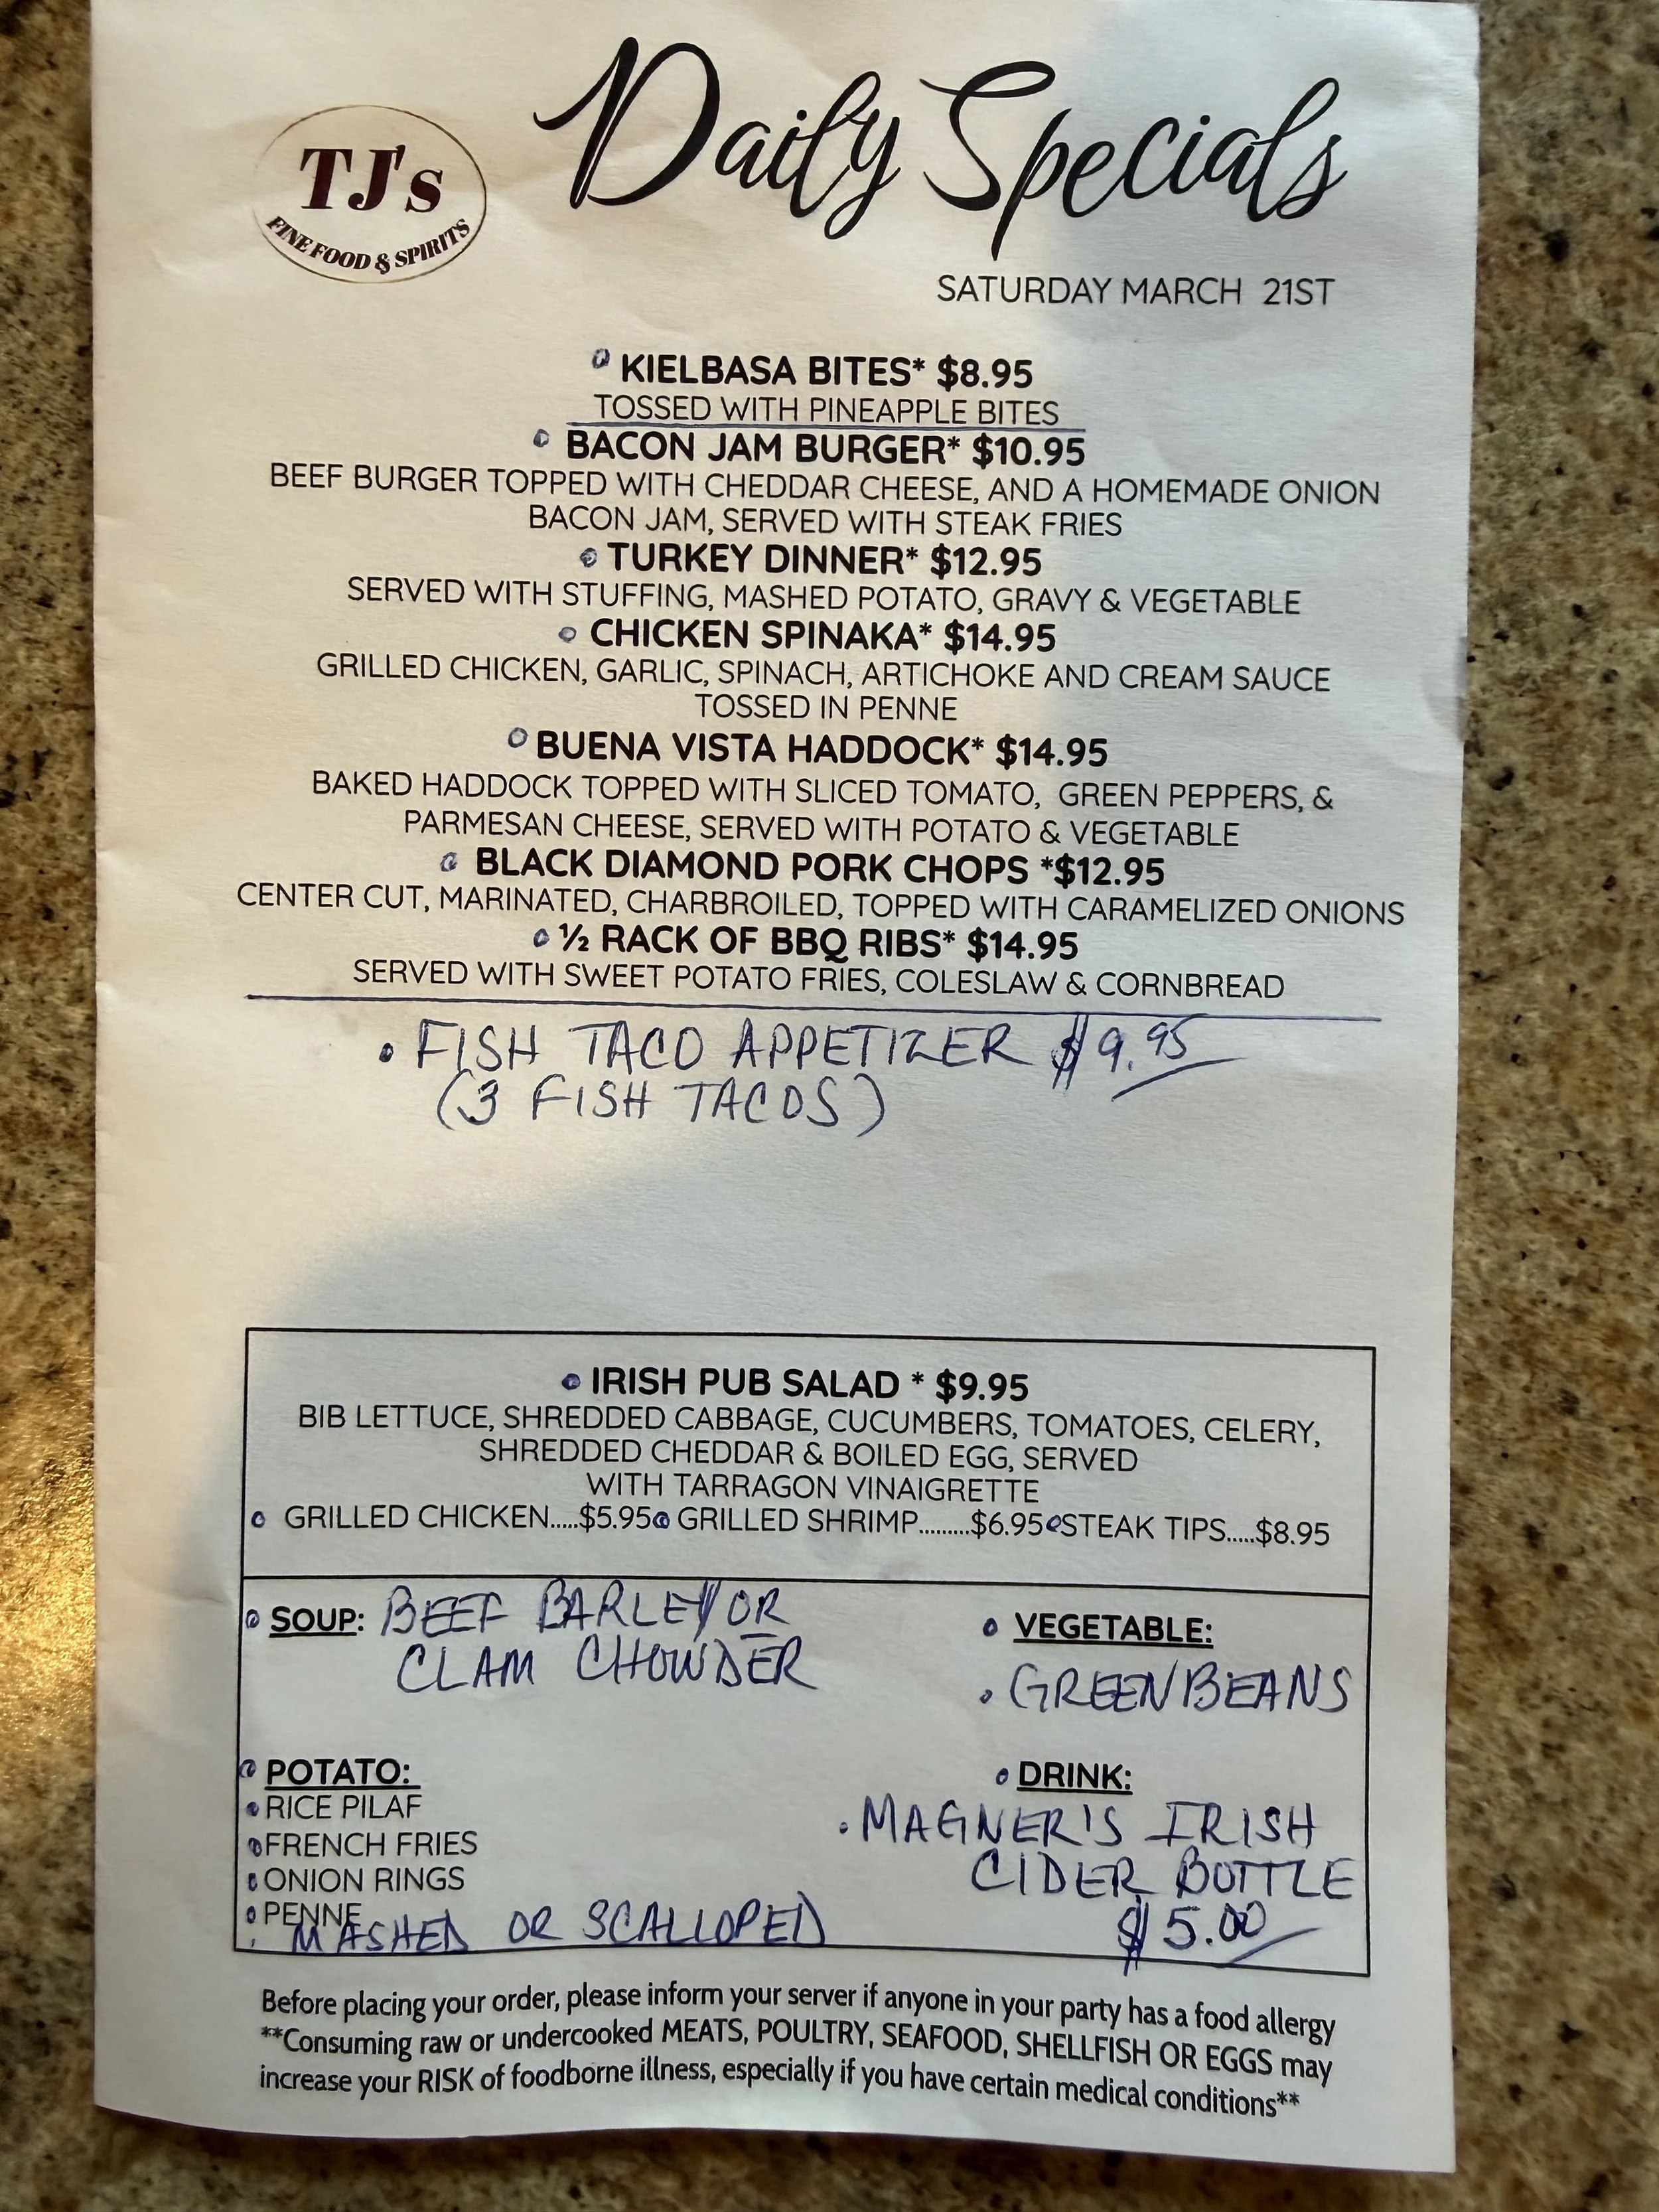 TJ's
FINE FOOD & SPIRITS
Daily Specials
SATURDAY MARCH 21ST
KIELBASA BITES* $8.95
TOSSED WITH PINEAPPLE BITES
BACON JAM BURGER* $10.95
BEEF BURGER TOPPED WITH CHEDDAR CHEESE, AND A HOMEMADE ONION
BACON JAM, SERVED WITH STEAK FRIES
TURKEY DINNER* $12.95
SERVED WITH STUFFING, MASHED POTATO, GRAVY & VEGETABLE
CHICKEN SPINAKA* $14.95
GRILLED CHICKEN, GARLIC, SPINACH, ARTICHOKE AND CREAM SAUCE
TOSSED IN PENNE
BUENA VISTA HADDOCK* $14.95
BAKED HADDOCK TOPPED WITH SLICED TOMATO, GREEN PEPPERS, &
PARMESAN CHEESE, SERVED WITH POTATO & VEGETABLE
BLACK DIAMOND PORK CHOPS *$12.95
CENTER CUT, MARINATED, CHARBROILED, TOPPED WITH CARAMELIZED ONIONS
½ RACK OF BBQ RIBS* $14.95
SERVED WITH SWEET POTATO FRIES, COLESLAW & CORNBREAD
• FISH TACO APPETIZER $9.95
(3 FISH TACOS)
IRISH PUB SALAD * $9.95
BIB LETTUCE, SHREDDED CABBAGE, CUCUMBERS, TOMATOES, CELERY,
SHREDDED CHEDDAR & BOILED EGG, SERVED
WITH TARRAGON VINAIGRETTE
GRILLED CHICKEN.....$5.95 GRILLED SHRIMP.........$6.95 STEAK TIPS.....$8.95
SOUP: BEEF BARLEY OR
CLAM CHOWDER
VEGETABLE:
• GREEN BEANS
POTATO:
RICE PILAF
FRENCH FRIES
ONION RINGS
PENNE
MASHED OR SCALLOPED
DRINK:
• MAGNER'S IRISH
CIDER BOTTLE
$5.00
Before placing your order, please inform your server if anyone in your party has a food allergy
**Consuming raw or undercooked MEATS, POULTRY, SEAFOOD, SHELLFISH OR EGGS may
increase your RISK of foodborne illness, especially if you have certain medical conditions**